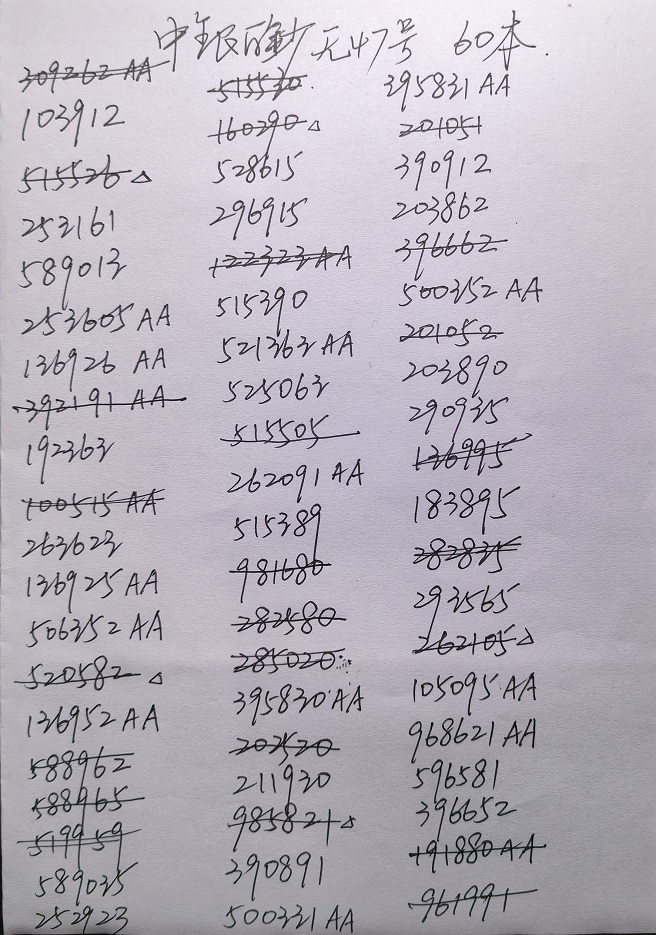 中银的钞无47号 60本.
309262 AA
103912
515526 △
253161
589013
253605 AA
136926 AA
392191 AA
192363
100515 AA
263623
136925 AA
506352 AA
520582 △
136952 AA
588962
588965
519959
589035
252923
515530.
160290 △
528615
296915
122323 AA
515390
521363 AA
525063
515505
262091 AA
515389
981680
282580
285020
395830 AA
202520
211930
985821 △
390891
500331 AA
395831 AA
201051
390912
203862
396662
500352 AA
201052
203890
290935
136995
183895
282835
293565
262105 △
105095 AA
968621 AA
596581
396652
191880 AA
961991